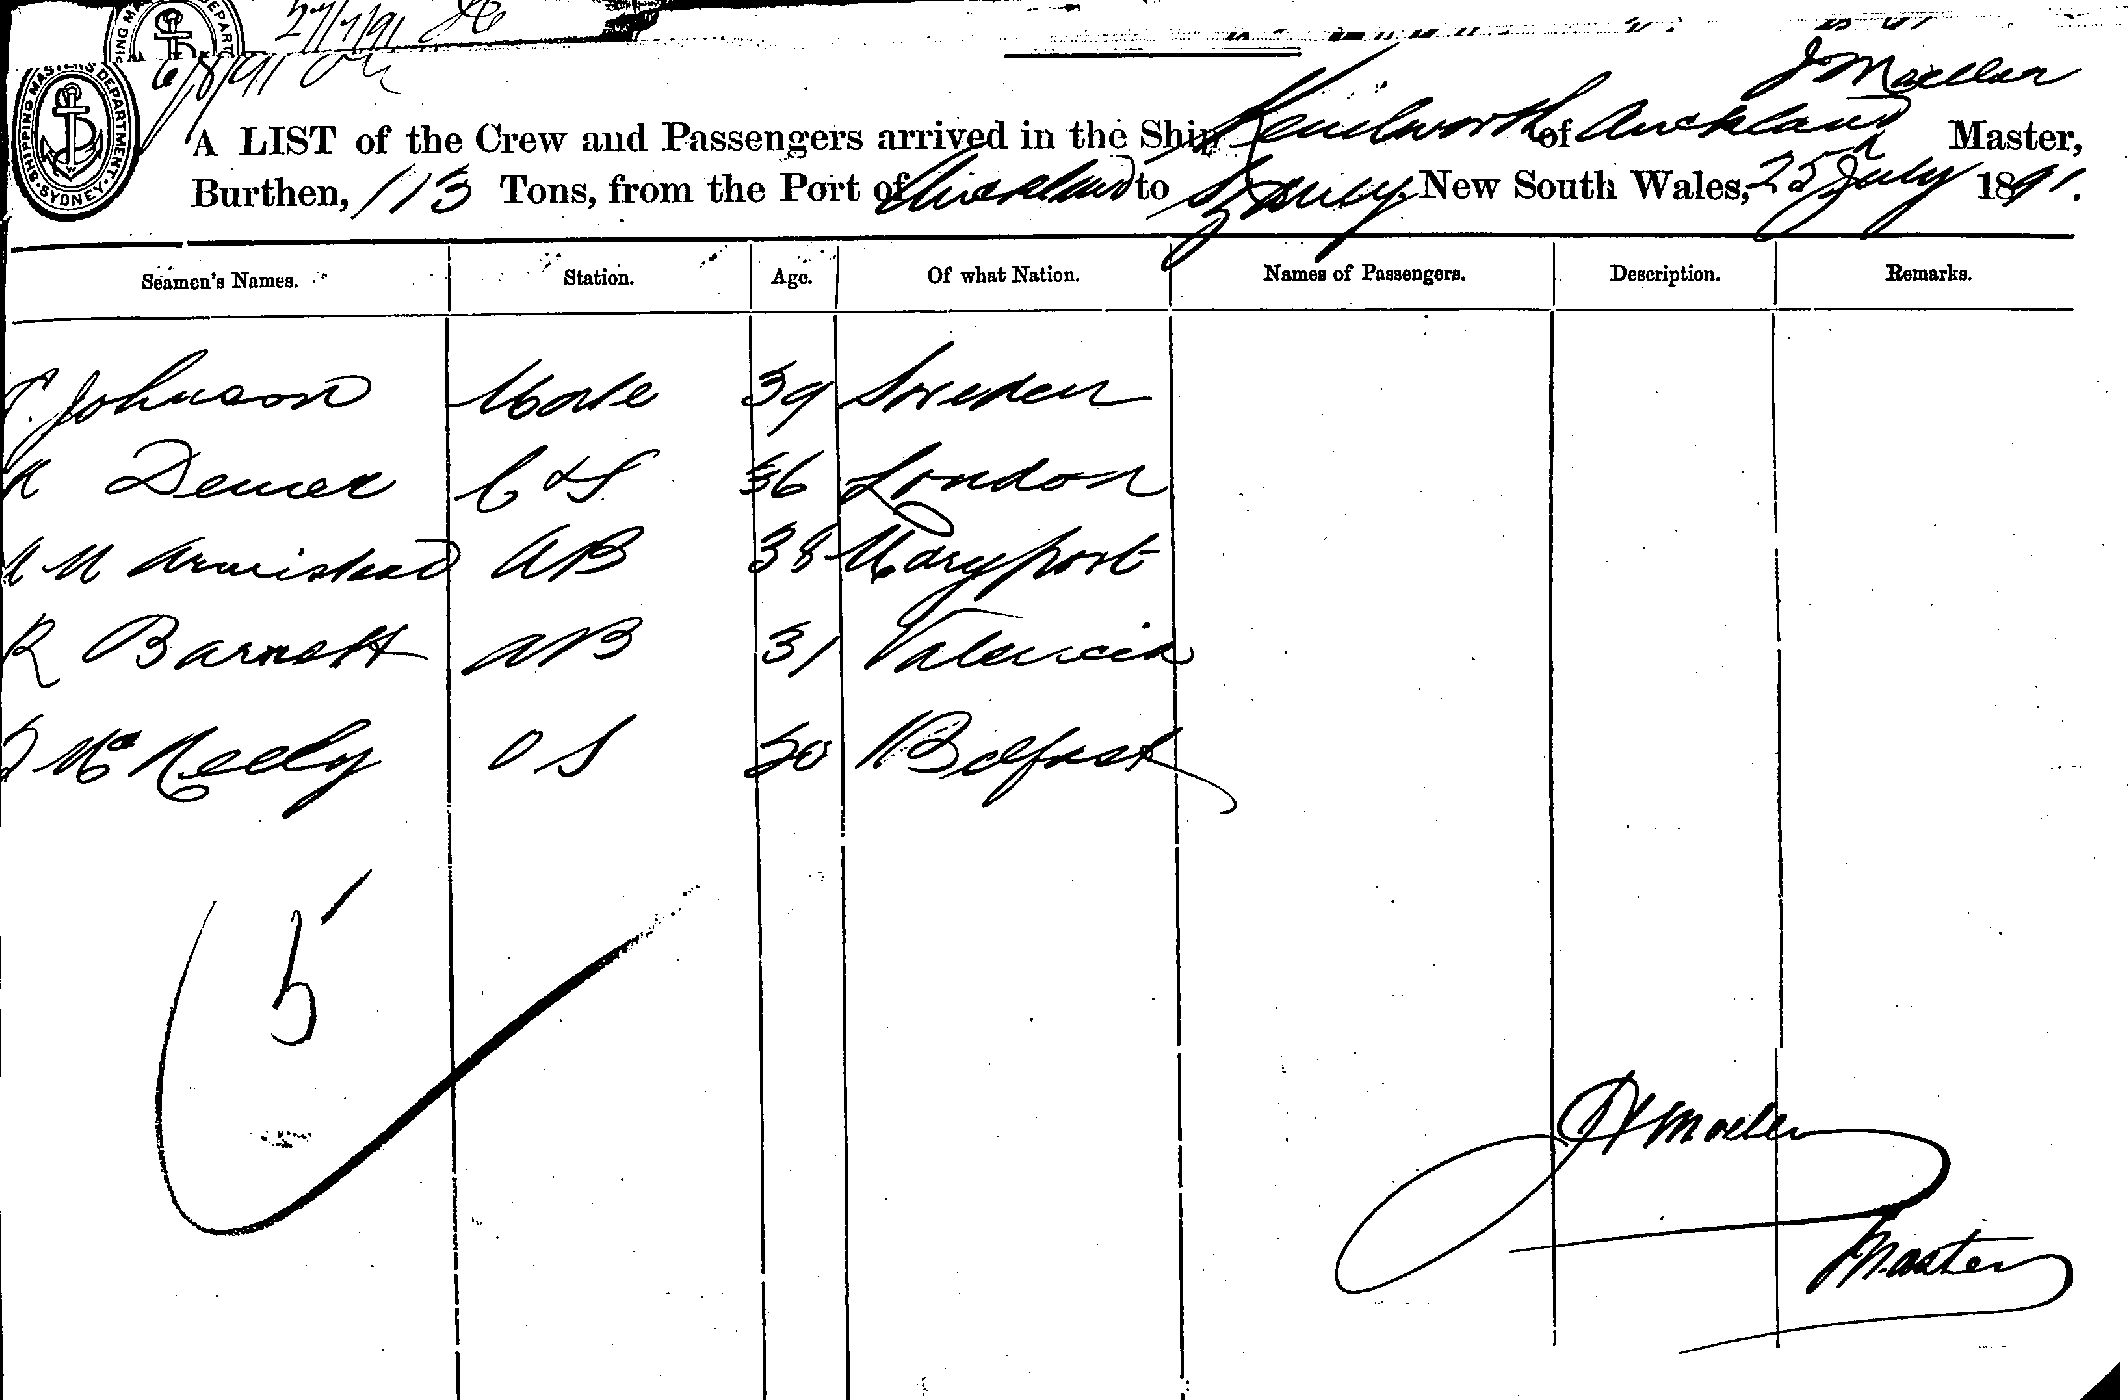 27/7/91
SHIPPING MASTERS DEPARTMENT SYDNEY
6/8/91
J Moellen
A LIST of the Crew and Passengers arrived in the Ship Kenilworth of Auckland Master,
Burthen, 113 Tons, from the Port of Auckland to Sydney New South Wales, 25th July 1891.
Seamen's Names. Station. Age. Of what Nation. Names of Passengers. Description. Remarks.
Johnson Mate 39 Sweden
Denier C & S 36 London
M Armistead AB 38 Maryport
R Barnett AB 31 Valencia
Mc Neely OS 20 Belfast
5
JH Moellen
Master